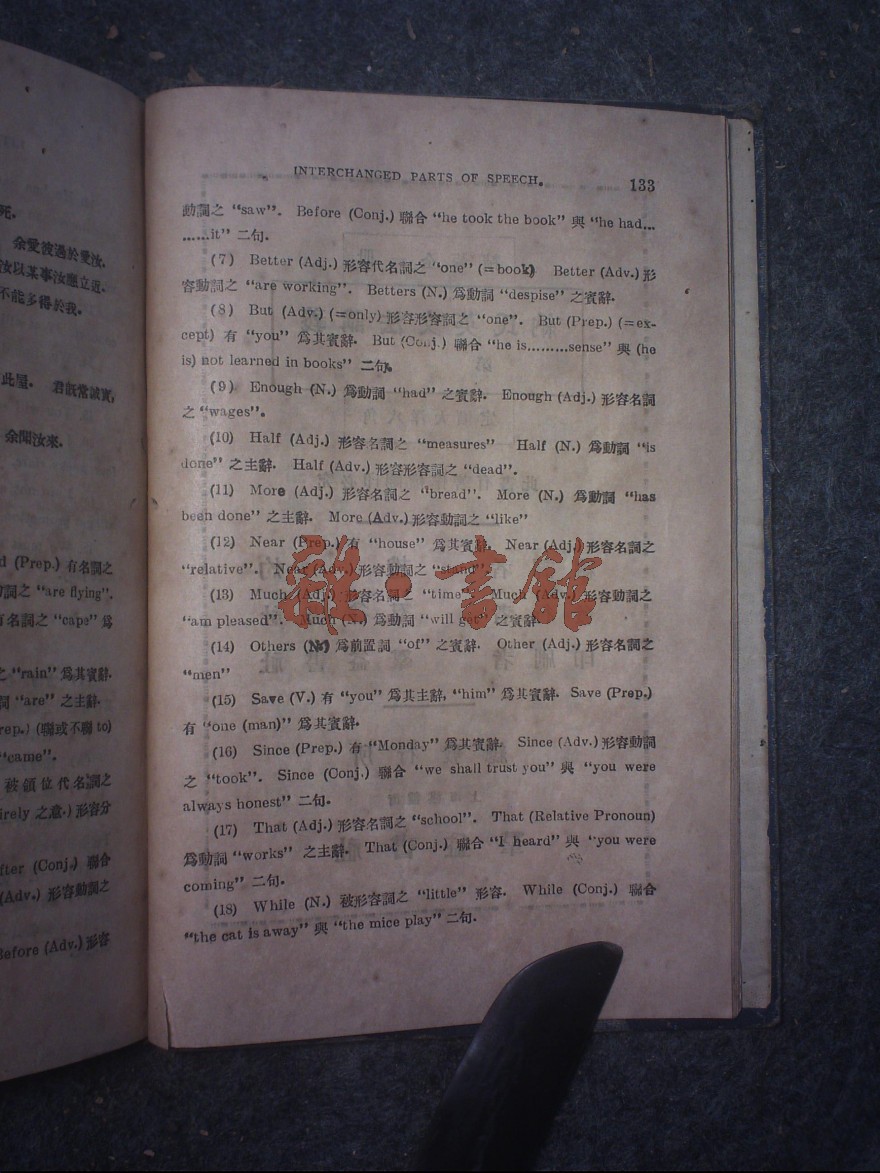 死.
余愛彼過於愛汝.
汝以某事汝應立近.
不能多得於我.
此屋. 君旣常誠實,
余聞汝來.
d (Prep.) 有名詞之
詞之 “are flying”.
有名詞之 “caps” 爲
之 “rain” 爲其賓辭.
詞 “are” 之主辭.
rep.) (聯或不聯 to)
“came”.
被領位代名詞之
irely 之意.) 形容分
fter (Conj.) 聯合
(Adv.) 形容動詞之
Before (Adv.) 形容
INTERCHANGED PARTS OF SPEECH.
133
動詞之 “saw”. Before (Conj.) 聯合 “he took the book” 與 “he had...
......it” 二句.
(7) Better (Adj.) 形容代名詞之 “one” (=book) Better (Adv.) 形
容動詞之 “are working”. Betters (N.) 爲動詞 “despise” 之賓辭.
(8) But (Adv.) (=only) 形容形容詞之 “one”. But (Prep.) (=ex-
cept) 有 “you” 爲其賓辭. But (Conj.) 聯合 “he is.........sense” 與 (he
is) not learned in books” 二句.
(9) Enough (N.) 爲動詞 “had” 之賓辭. Enough (Adj.) 形容名詞
之 “wages”.
(10) Half (Adj.) 形容名詞之 “measures” Half (N.) 爲動詞 “is
done” 之主辭. Half (Adv.) 形容形容詞之 “dead”.
(11) More (Adj.) 形容名詞之 “bread”. More (N.) 爲動詞 “has
been done” 之主辭. More (Adv.) 形容動詞之 “like”
(12) Near (Prep.) 有 “house” 爲其賓辭. Near (Adj.) 形容名詞之
“relative”. Near (Adv.) 形容動詞之 “stand”.
(13) Much (Adj.) 形容名詞之 “time”. Much (Adv.) 形容動詞之
“am pleased”. Much (N.) 爲動詞 “will get” 之賓辭.
(14) Others (N.) 爲前置詞 “of” 之賓辭. Other (Adj.) 形容名詞之
“men”
(15) Save (V.) 有 “you” 爲其主辭, “him” 爲其賓辭. Save (Prep.)
有 “one (man)” 爲其賓辭.
(16) Since (Prep.) 有 “Monday” 爲其賓辭. Since (Adv.) 形容動詞
之 “took”. Since (Conj.) 聯合 “we shall trust you” 與 “you were
always honest” 二句.
(17) That (Adj.) 形容名詞之 “school”. That (Relative Pronoun)
爲動詞 “works” 之主辭. That (Conj.) 聯合 “I heard” 與 “you were
coming” 二句.
(18) While (N.) 被形容詞之 “little” 形容. While (Conj.) 聯合
“the cat is away” 與 “the mice play” 二句.
雜·書館